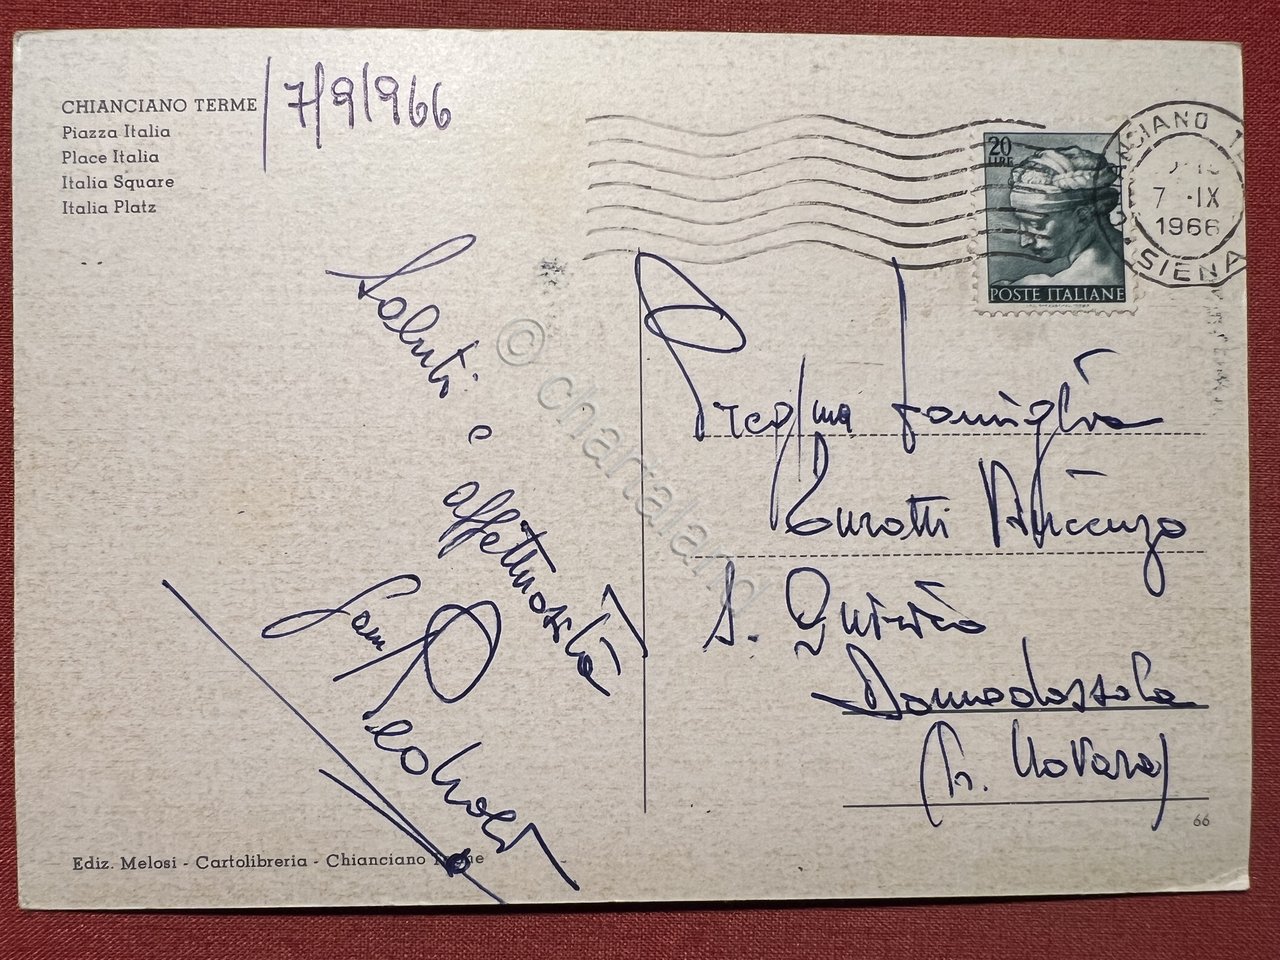 CHIANCIANO TERME
Piazza Italia
Place Italia
Italia Square
Italia Platz
7/9/966
20
LIRE
POSTE ITALIANE
7 · IX
1966
SIENA
Saluti e
affettuosità
Fam
© chartaland
famiglia
S. Quirico
Domodossola
(Pr. Novara)
66
Ediz. Melosi - Cartolibreria - Chianciano Terme